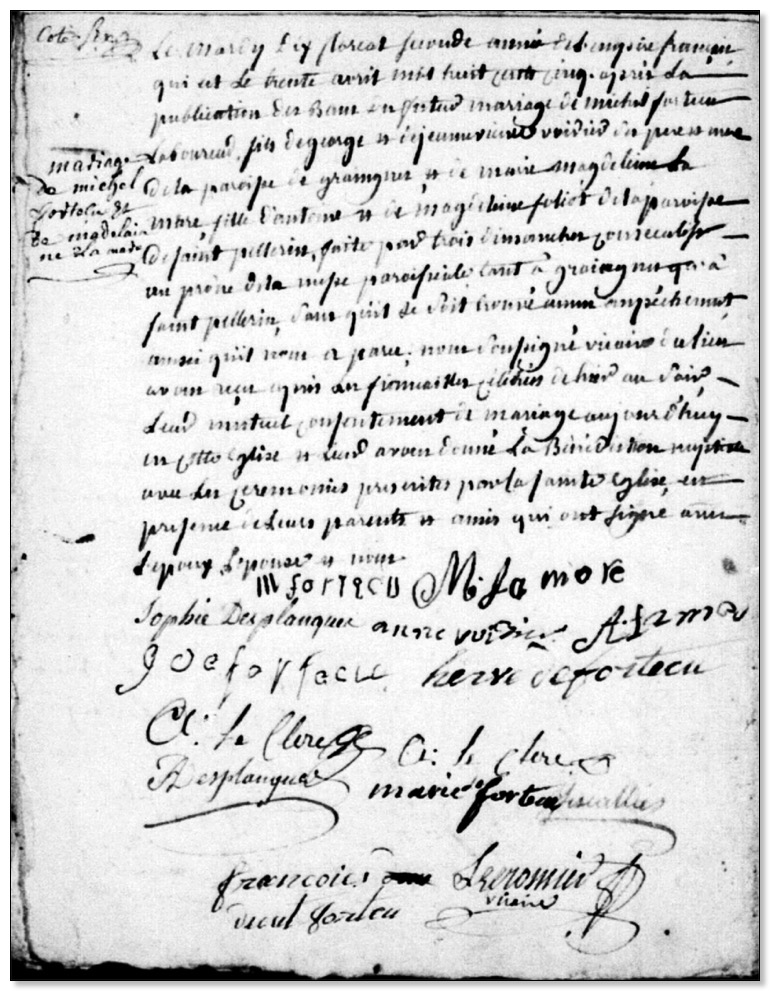 Le mardy dix floreal seconde année de l'empire françai
qui est le trente avril mil huit cents cinq. après la
publication des Bans du futur mariage de michel fortecu
Laboureur, fils de george et de jeannevieve voisin des pere et mere
de la paroisse de graignes et de marie magdeleine la
mare, fille d'antoine et de magdeleine foliot de la paroisse
de saint pellerin, faite par trois dimanches consecutifs
au prône de la messe paroissiale tant à graignes qu'à
saint pellerin, sans qu'il se soit trouvé aucun empéchement
ainsi qu'il nous a paru. nous soussigné vicaire du lieu
avons reçu après les fiancailles célébrés de hier au soir
Leur mutuel consentement de mariage aujourd'huy
en cette église et leur avons donné la Bénédiction nuptiale
avec les ceremonies prescrites par la sainte église en
presence de leurs parents et amis qui ont signé avec
L'epoux L'epouse et nous
mariage
de michel
fortecu et
de magdelai
ne la mare
m fortecu M. la more
Sophie Desplanques anne voisin A. lamare
Joe fortecu herve de fortecu
le Clerc
le clerc
Desplanques
marie fortecu
francois
fortecu
vicaire